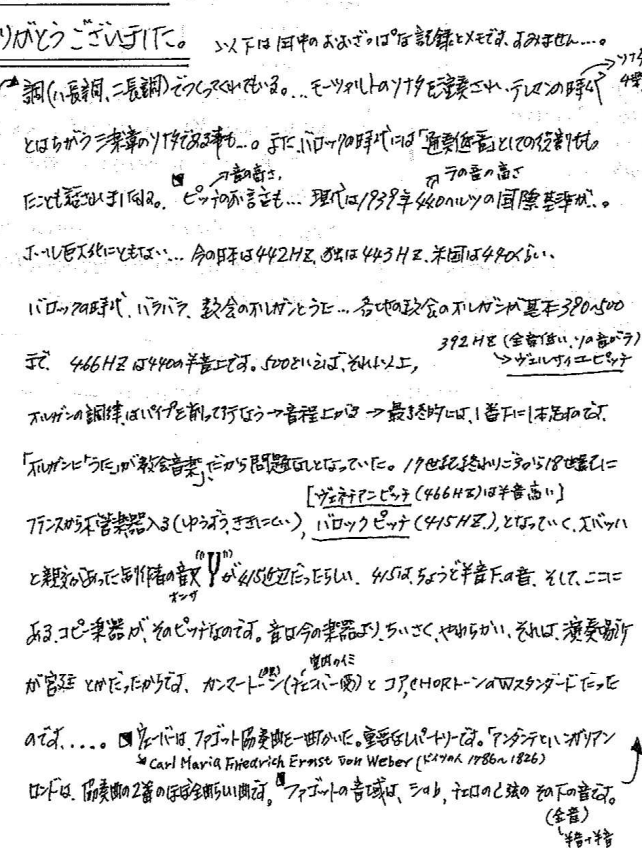 りがとうございました。 以下は田中のおおざっぱな記録とメモです、すみません…。
調(ハ長調、ニ長調)でつくってくれている。…モーツァルトのソナタを演奏され、テレマンの時代 ソナタ 4楽
とはちがう三楽章のソナタである事も…。また、バロックの時代には「通奏低音」としての役割もも
音の高さ ラの音の高さ
たことも話されましたね。 ピッチのお話も… 現代は1939年440ヘルツの国際基準が…。
ホール巨大化にともない… 今の日本は442HZ、独は443HZ、米国は440くらい、
バロックの時代、バラバラ、教会のオルガンとうに… 各地の教会のオルガンが基本390~500
392HZ (全音低い、ソの音がラ)
まで、 466HZは440の半音上です。500といえば、それ以上、 ヴェルサイユピッチ
オルガンの調律はパイプを削って行なう→音程上がる→最終的には、1番下に1本足すのです、
「オルガンに「うた」が教会音楽」、だから問題なしとなっていた。17世紀終わりごろから18世紀に
[ヴェネチアンピッチ(466HZ)は半音高い]
フランスから木管楽器入る(ゆうぼう、ききにくい)、バロックピッチ(415HZ)、となっていく、大バッハ
と親交があった製作者の音叉が415近辺だったらしい、415は、ちょうど半音下の音、そして、ここに
オンサ
ある、コピー楽器が、そのピッチなのです。音は今の楽器より、ちいさく、やわらかい、それは、演奏場所
室内のイミ
が宮廷とかだったからです、カンマートーン(チェンバー的)とコア、CHORトーンのWスタンダードだった
のです、….。 ウェーバーは、ファゴット協奏曲を一曲かいた。重要なレパートリーです。「アンダンテとハンガリアン
Carl Maria Friedrich Ernst von Weber (ドイツの人 1786~1826)
ロンドは、協奏曲の2番のほぼ全曲らしい曲です。 ファゴットの音域は、シのb、チェロのC弦のその下の音です。
(全音)
半音+半音